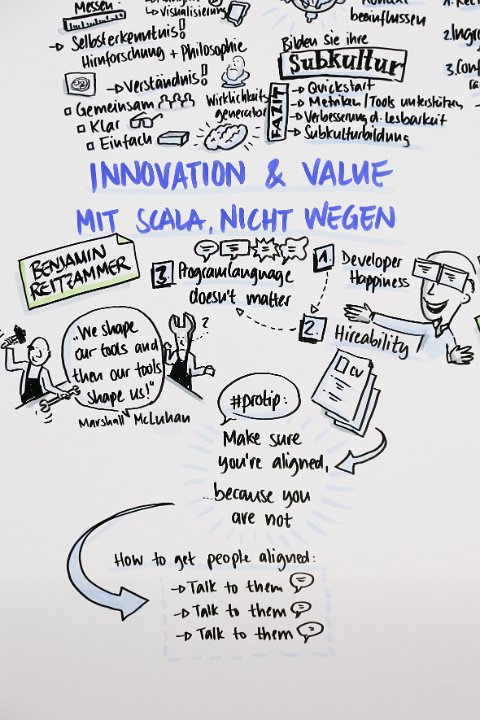 Messen:
↳ Visualisierung
→ Selbsterkenntnis!
Hirnforschung + Philosophie
→ Verständnis!
Gemeinsam
Klar
Einfach
Wirklichkeits
generator
beeinflussen
Bilden sie ihre
Subkultur
FAZIT
→ Quickstart
→ Metriken/Tools unterstützen
→ Verbesserung d. Lesbarkeit
→ Subkulturbildung
2.
3. Conf
INNOVATION & VALUE
MIT SCALA, NICHT WEGEN
BENJAMIN
REITZAMMER
1. Developer
Happiness
2. Hireability
3. Programlanguage
doesn't matter
"We shape
our tools and
then our tools
shape us!"
Marshall McLuhan
?
CV
#protip:
Make sure
you're aligned,
...because you
are not
How to get people aligned:
→ Talk to them
→ Talk to them
→ Talk to them